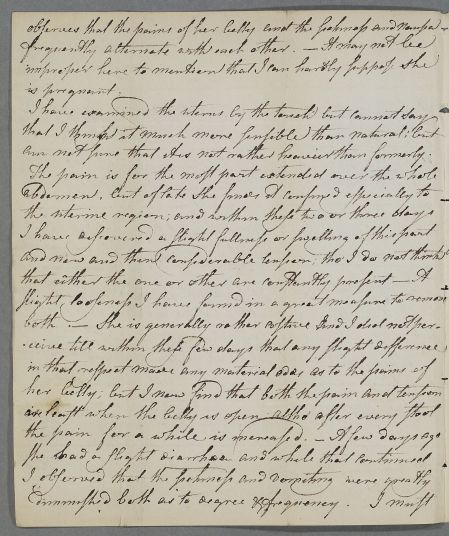 observes that the pains of her belly and the sickness and nausea
frequently alternate with each other. — It may not be
improper here to mention that I can hardly suppose she
is pregnant.
I have examined the uterus by the touch but cannot say
that I thought it much more sensible than natural; but
am not sure that it is not rather heavier than formerly.
The pain is for the most part extended over the whole
abdomen, but of late she finds it confined especially to
the uterine region; and within these two or three days
I have discovered a slight fullness or swelling of this part
and now and then considerable tension, tho' I do not think
that either the one or other are constantly present — A
slight looseness I have found in a great measure to remove
both. — She is generally rather costive and I did not per-
ceive till within these few days that any slight difference
in that respect made any material odds as to the pains of
her belly; but I now find that both the pain and tension
are least when the belly is open, altho' after every stool
the pain for a while is increased. — A few days ago
she had a slight diarrhœa and while that continued
I observed that the sickness and vomiting were greatly
diminished both as to degree & frequency. I must